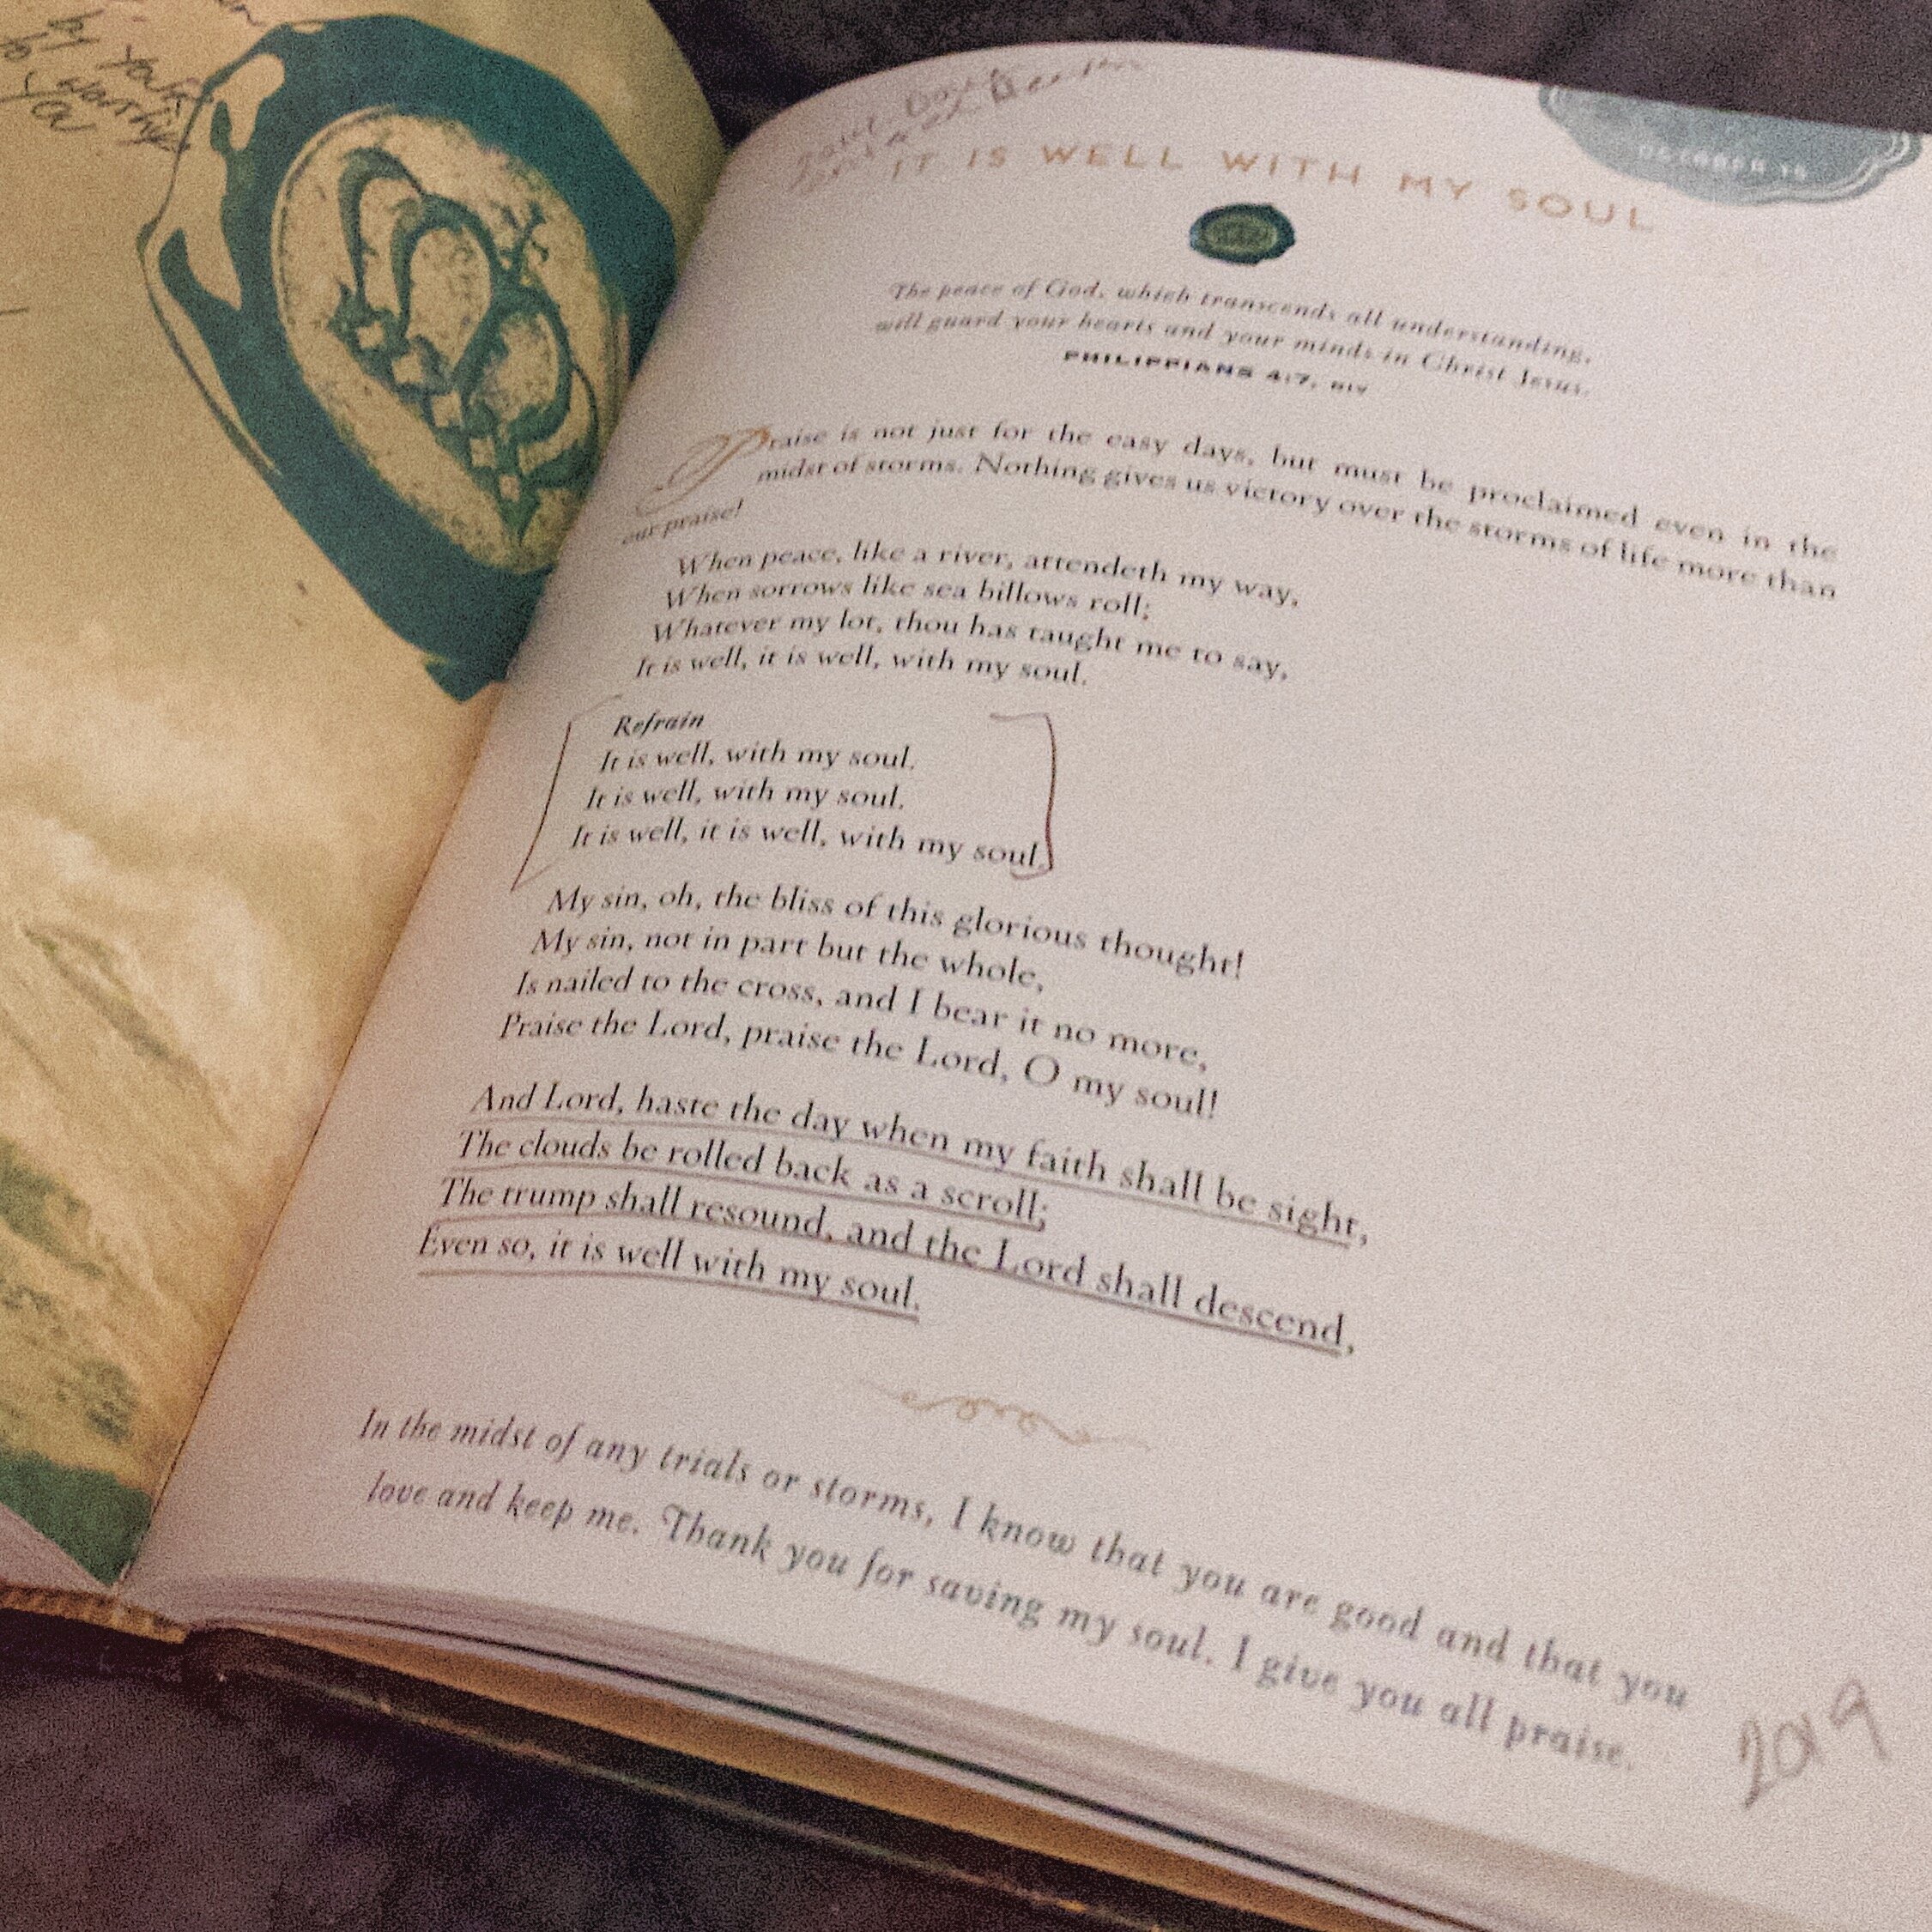 by your
to worship
you
OCTOBER 15
IT IS WELL WITH MY SOUL
The peace of God, which transcends all understanding,
will guard your hearts and your minds in Christ Jesus.
PHILIPPIANS 4:7, NIV
Praise is not just for the easy days, but must be proclaimed even in the
midst of storms. Nothing gives us victory over the storms of life more than
our praise!
When peace, like a river, attendeth my way,
When sorrows like sea billows roll;
Whatever my lot, thou has taught me to say,
It is well, it is well, with my soul.
Refrain
It is well, with my soul.
It is well, with my soul.
It is well, it is well, with my soul.
My sin, oh, the bliss of this glorious thought!
My sin, not in part but the whole,
Is nailed to the cross, and I bear it no more,
Praise the Lord, praise the Lord, O my soul!
And Lord, haste the day when my faith shall be sight,
The clouds be rolled back as a scroll;
The trump shall resound, and the Lord shall descend,
Even so, it is well with my soul.
In the midst of any trials or storms, I know that you are good and that you
love and keep me. Thank you for saving my soul. I give you all praise.
2019